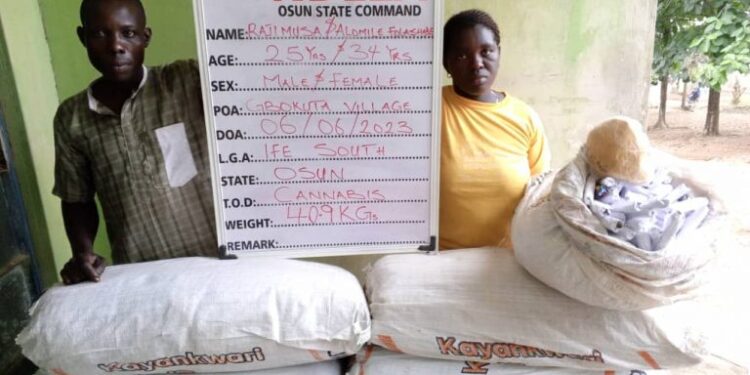 OSUN STATE COMMAND
NAME: RAJI MUSA & ALOMILE
AGE: 25 Yrs & 34 Yrs
SEX: MALE & FEMALE
POA: GBOKUTA VILLAGE
DOA: 06/06/2023
L.G.A: IFE SOUTH
STATE: OSUN
T.O.D: CANNABIS
WEIGHT: 40.9KGs
REMARK:
Kayankwari
Kayankwari